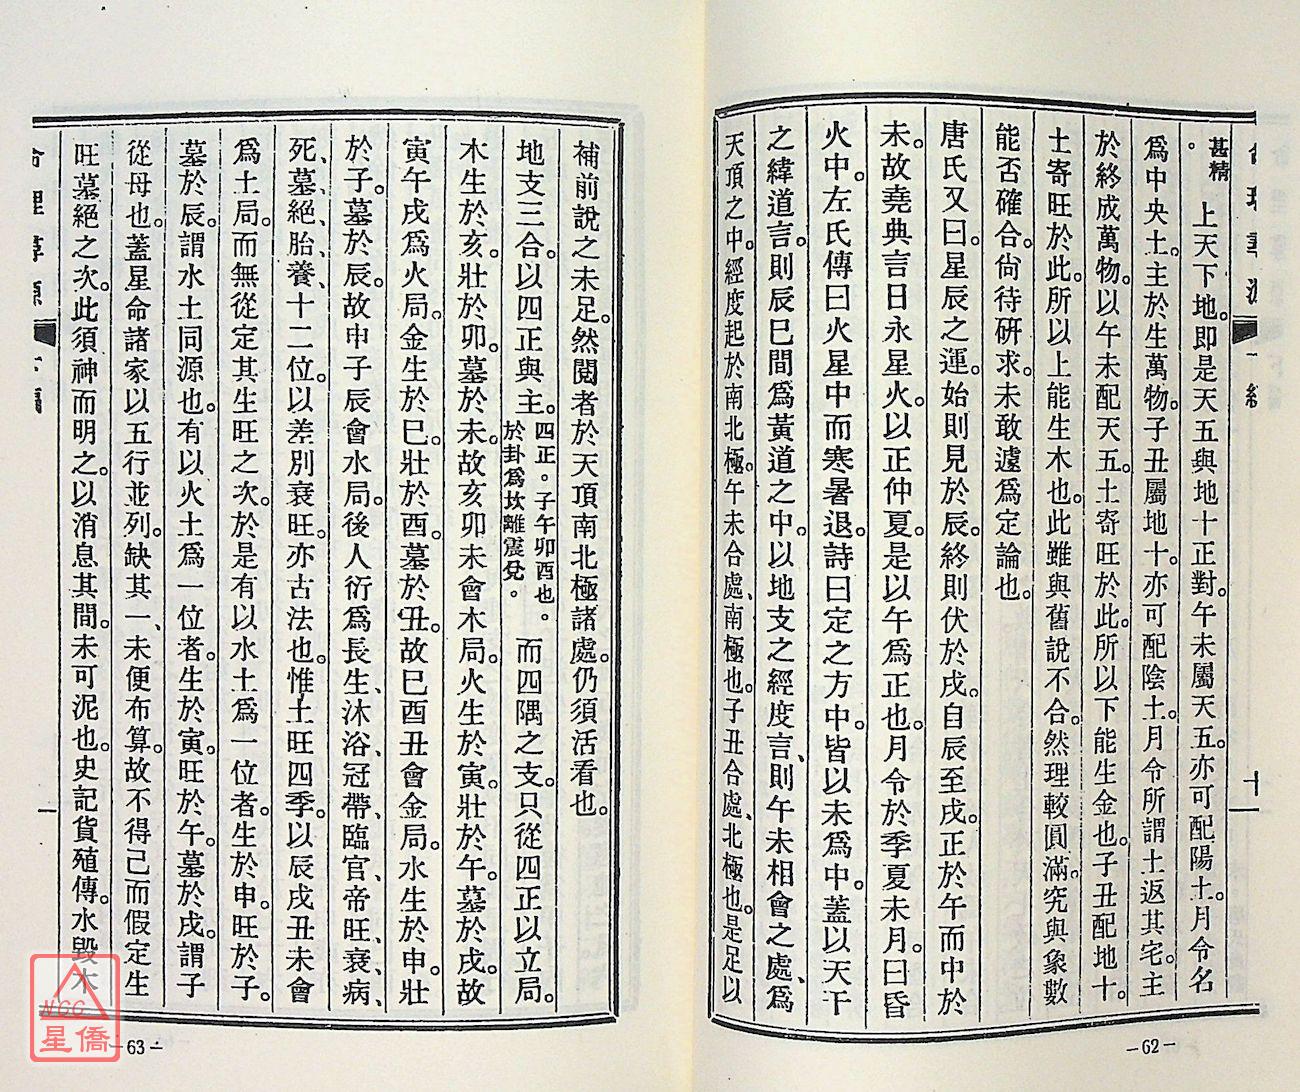 甚精。上天下地。即是天五與地十正對。午未屬天五。亦可配陽土。月令名
爲中央土。主於生萬物。子丑屬地十。亦可配陰土。月令所謂土返其宅。主
於終成萬物。以午未配天五。土寄旺於此。所以下能生金也。子丑配地十。
土寄旺於此。所以上能生木也。此雖與舊說不合。然理較圓滿。究與象數
能否確合。尙待硏求。未敢遽爲定論也。
唐氏又曰。星辰之運。始則見於辰。終則伏於戌。自辰至戌。正於午而中於
未。故堯典言日永星火。以正仲夏。是以午爲正也。月令於季夏未月。曰昏
火中。左氏傳曰火星中而寒暑退。詩曰定之方中。皆以未爲中。蓋以天干
之緯道言。則辰巳間爲黃道之中。以地支之經度言、則午未相會之處、爲
天頂之中。經度起於南北極。午未合處、南極也。子丑合處、北極也。是足以
—62—
補前說之未足。然閱者於天頂南北極諸處。仍須活看也。
地支三合。以四正與主。四正。子午卯酉也。於卦爲坎離震兌。而四隅之支。只從四正以立局。
木生於亥。壯於卯。墓於未。故亥卯未會木局。火生於寅。壯於午。墓於戌。故
寅午戌爲火局。金生於巳。壯於酉。墓於丑。故巳酉丑會金局。水生於申。壯
於子。墓於辰。故申子辰會水局。後人衍爲長生、沐浴、冠帶、臨官、帝旺、衰、病、
死、墓、絕、胎、養、十二位。以差別衰旺。亦古法也。惟土旺四季。以辰戌丑未會
爲土局。而無從定其生旺之次。於是有以水土爲一位者。生於申。旺於子。
墓於辰。謂水土同源也。有以火土爲一位者。生於寅。旺於午。墓於戌。謂子
從母也。蓋星命諸家以五行並列。缺其一、未便布算。故不得已而假定生
旺墓絕之次。此須神而明之。以消息其間。未可泥也。史記貨殖傳。水毀木
—63—
NCC
星僑